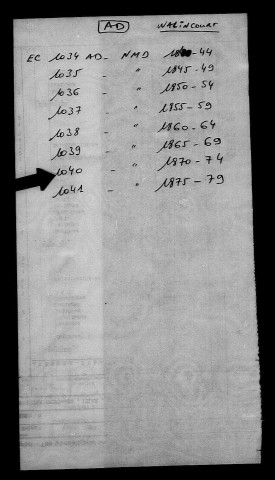 AD WALINCOURT
EC 1034 AD - NMD 1840-44
1035 - " 1845-49
1036 - " 1850-54
1037 - " 1855-59
1038 - " 1860-64
1039 - " 1865-69
1040 - " 1870-74
1041 - " 1875-79